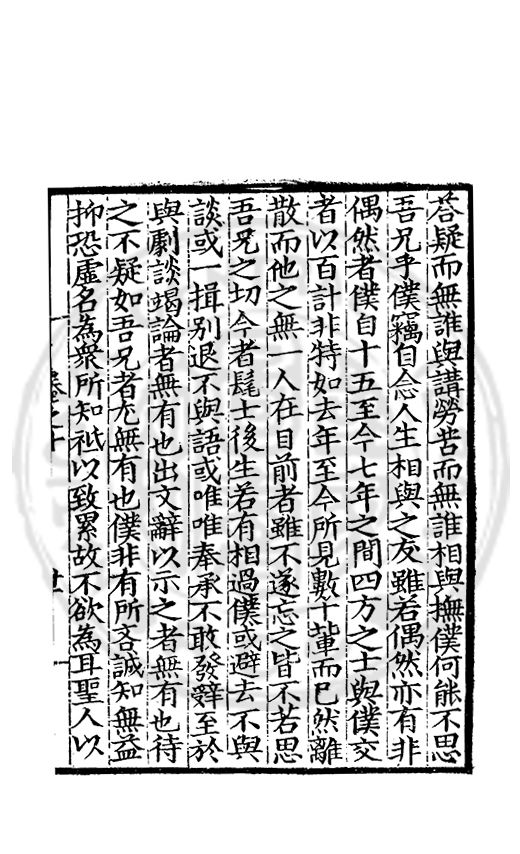 荅疑而無誰與講勞苦而無誰相與撫僕何能不思
吾兄乎僕竊自念人生相與之友雖若偶然亦有非
偶然者僕自十五至今七年之間四方之士與僕交
者以百計非特如去年至今所見數十輩而已然離
散而他之無一人在目前者雖不遂忘之皆不若思
吾兄之切今者髦士後生若有相過僕或避去不與
談或一揖別退不與語或唯唯奉承不敢發辭至於
與劇談竭論者無有也出文辭以示之者無有也待
之不疑如吾兄者尤無有也僕非有所吝誠知無益
抑恐虛名為衆所知祗以致累故不欲為耳聖人以
卷之十